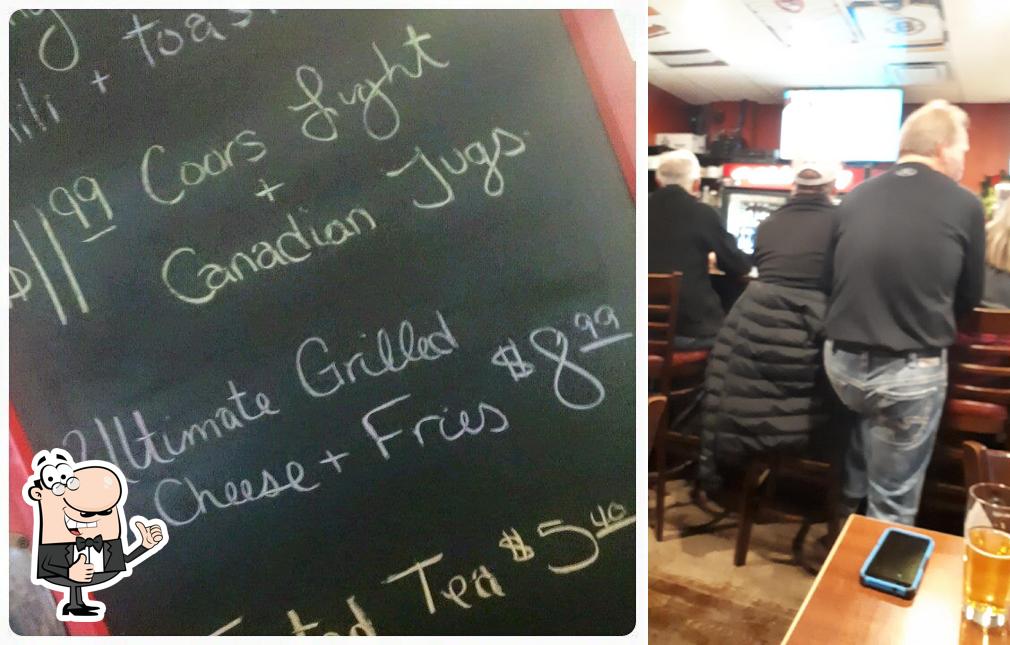 toas
ili +
$11 99 Coors Light
+
Canadian Jugs
Ultimate Grilled
Cheese + Fries $8 99
Tea $5 40